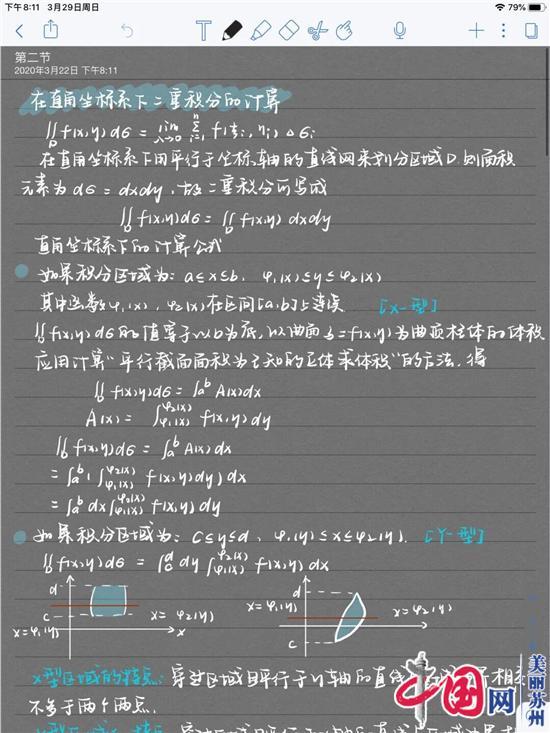 下午8:11 3月29日周日
79%
第二节
2020年3月22日 下午8:11
在直角坐标系下二重积分的计算
∬_D f(x,y)dσ = lim_{λ→0} Σ_{i=1}^{n} f(ξi, ηi)Δσi
在直角坐标系下用平行于坐标轴的直线网来划分区域D 则面积
元素为 dσ = dxdy, 故二重积分可写成
∬_D f(x,y)dσ = ∬_D f(x,y)dxdy
直角坐标系下的计算公式
如果积分区域为: a≤x≤b, φ1(x)≤y≤φ2(x)
其中函数φ1(x), φ2(x)在区间[a,b]上连续 [X-型]
∬_D f(x,y)dσ的值等于以D为底, 以曲面z=f(x,y)为曲顶柱体的体积
应用计算"平行截面面积为已知的立体求体积"的方法, 得
∬_D f(x,y)dσ = ∫_a^b A(x)dx
A(x) = ∫_{φ1(x)}^{φ2(x)} f(x,y)dy
∬_D f(x,y)dσ = ∫_a^b A(x)dx
= ∫_a^b (∫_{φ1(x)}^{φ2(x)} f(x,y)dy)dx
= ∫_a^b dx∫_{φ1(x)}^{φ2(x)} f(x,y)dy
如果积分区域为: c≤y≤d, φ1(y)≤x≤φ2(y). [Y-型]
∬_D f(x,y)dσ = ∫_c^d dy∫_{φ1(x)}^{φ2(x)} f(x,y)dx
d
c
x=φ1(y)
x=φ2(y)
x
d
x=φ1(y)
x=φ2(y)
c
X型区域的特点: 穿过区域且平行于y轴的直线
不多于两个两点.
中国网
美丽苏州